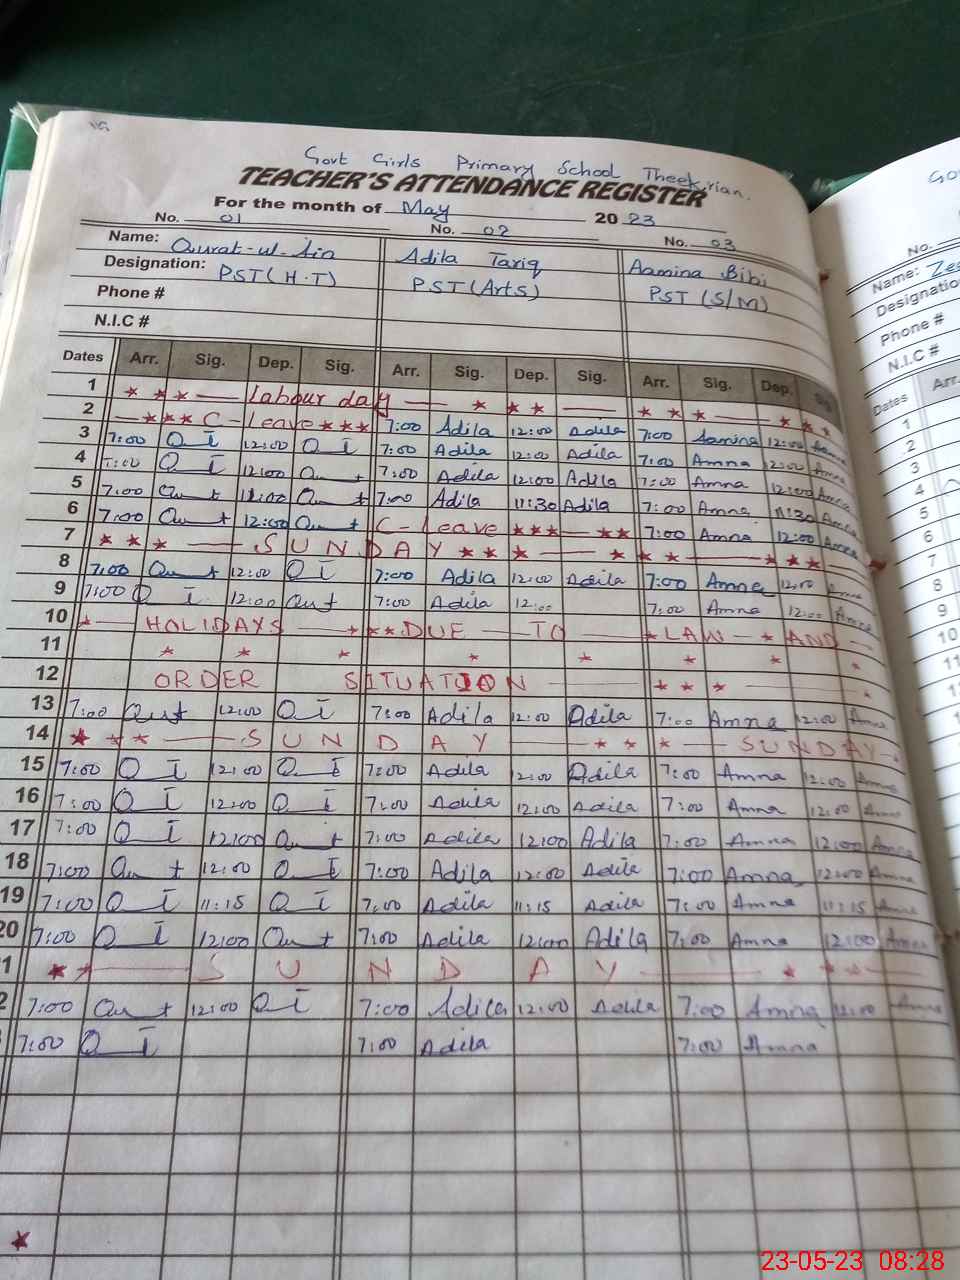 Govt Girls Primary School Theekrian.
TEACHER'S ATTENDANCE REGISTER
For the month of May 2023
No. 01 No. 02 No. 03
Name: Qurat-ul-Ain Adila Tariq Aamina Bibi
Designation: PST(H.T) PST(Arts) PST(S/M)
Phone #
N.I.C #
Dates Arr. Sig. Dep. Sig. Arr. Sig. Dep. Sig. Arr. Sig. Dep.
1 * * * — Labour day — * * * — * * * — * * *
2 — * * * C-Leave * * * 7:00 Adila 12:00 Adila 7:00 Aamina 12:00 Amna
3 7:00 12:00 7:00 Adila 12:00 Adila 7:00 Amna 12:00 Amna
4 7:00 12:00 7:00 Adila 12:00 Adila 7:00 Amna 12:00 Amna
5 7:00 7:00 Adila 11:30 Adila 7:00 Amna 11:30 Amna
6 7:00 12:00 C-Leave * * * — * * 7:00 Amna 12:00 Amna
7 * * * — SUNDAY * * * — * * * — * * *
8 7:00 12:00 7:00 Adila 12:00 Adila 7:00 Amna 12:00 Amna
9 7:00 12:00 7:00 Adila 12:00 7:00 Amna 12:00 Amna
10 * — HOLIDAYS — * * * DUE — TO — * LAW — * AND —
11 * * * * * * * *
12 ORDER SITUATION * * * — *
13 7:00 12:00 7:00 Adila 12:00 Adila 7:00 Amna 12:00 Amna
14 * * * — SUNDAY — * * * — SUNDAY
15 7:00 12:00 7:00 Adila 12:00 Adila 7:00 Amna 12:00 Amna
16 7:00 12:00 7:00 Adila 12:00 Adila 7:00 Amna 12:00 Amna
17 7:00 12:00 7:00 Adila 12:00 Adila 7:00 Amna 12:00 Amna
18 7:00 12:00 7:00 Adila 12:00 Adila 7:00 Amna 12:00 Amna
19 7:00 11:15 7:00 Adila 11:15 Adila 7:00 Amna 11:15 Amna
20 7:00 12:00 7:00 Adila 12:00 Adila 7:00 Amna 12:00 Amna
1 * * — SUNDAY — * * * —
2 7:00 12:00 7:00 Adila 12:00 Adila 7:00 Amna 12:00 Amna
7:00 7:00 Adila 7:00 Amna
*
No.
Name:
Phone #
N.I.C #
Arr.
Dates
1
2
3
4
5
6
7
8
9
10
11
12
23-05-23 08:28